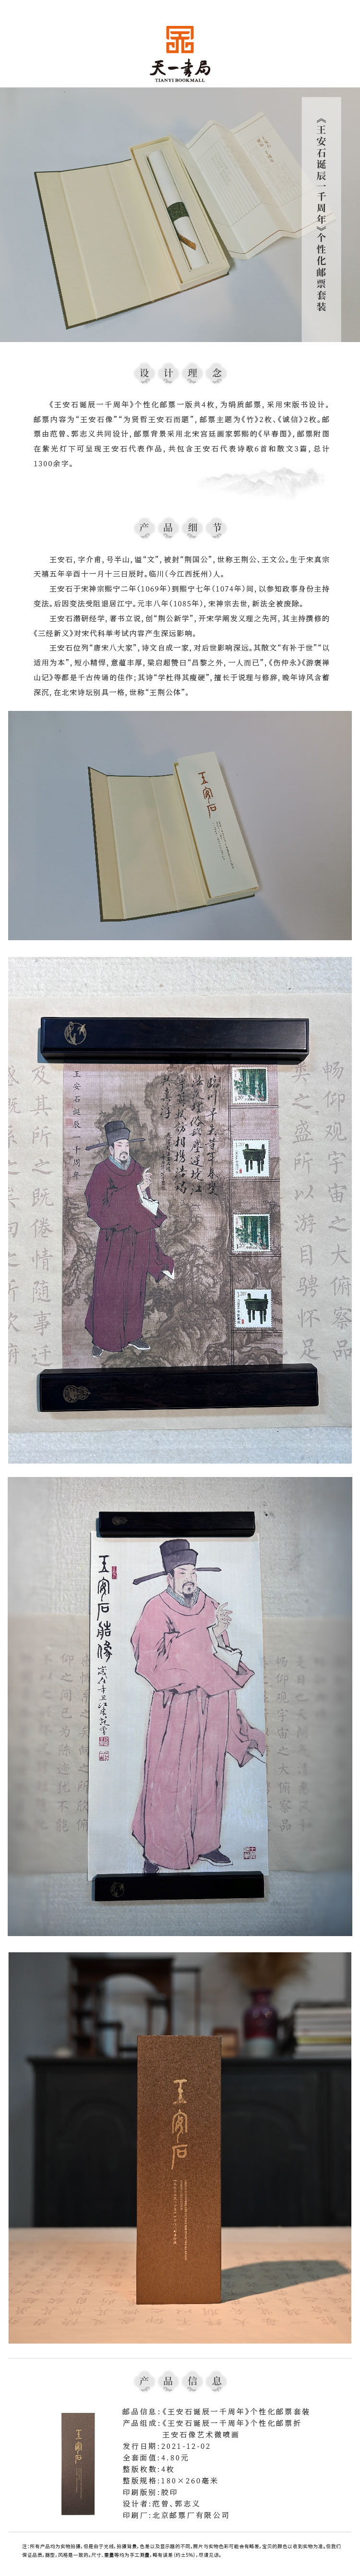 天一書局
TIANYI BOOK MALL
《王安石诞辰一千周年》个性化邮票套装
设计理念
《王安石诞辰一千周年》个性化邮票一版共4枚,为绢质邮票,采用宋版书设计。
邮票内容为“王安石像”“为贤哲王安石而题”,邮票主题为《竹》2枚、《诚信》2枚。邮
票由范曾、郭志义共同设计,邮票背景采用北宋宫廷画家郭熙的《早春图》,邮票附图
在紫光灯下可呈现王安石代表作品,共包含王安石代表诗歌6首和散文3篇,总计
1300余字。
产品细节
王安石,字介甫,号半山,谥“文”,被封“荆国公”,世称王荆公、王文公。生于宋真宗
天禧五年辛酉十一月十三日辰时。临川(今江西抚州)人。
王安石于宋神宗熙宁二年(1069年)到熙宁七年(1074年)间,以参知政事身份主持
变法。后因变法受阻退居江宁。元丰八年(1085年),宋神宗去世,新法全被废除。
王安石潜研经学,著书立说,创“荆公新学”,开宋学阐发义理之先河,其主持撰修的
《三经新义》对宋代科举考试内容产生深远影响。
王安石位列“唐宋八大家”,诗文自成一家,对后世影响深远。其散文“有补于世”“以
适用为本”,短小精悍,意蕴丰厚,梁启超赞曰“昌黎之外,一人而已”,《伤仲永》《游褒禅
山记》等都是千古传诵的佳作;其诗“学杜得其瘦硬”,擅长于说理与修辞,晚年诗风含蓄
深沉,在北宋诗坛别具一格,世称“王荆公体”。
王安石
王安石诞辰一千周年
及其所之既倦情随事迁
畅观宙之大俯察品
类之盛所以游目骋怀足
1.20
1.20
王安石诰像
仰之间已为陈迹犹不能
王安石
产品信息
邮品信息:《王安石诞辰一千周年》个性化邮票套装
产品组成:《王安石诞辰一千周年》个性化邮票折
王安石像艺术微喷画
发行日期:2021-12-02
全套面值:4.80元
整版枚数:4枚
整版规格:180×260毫米
印刷版别:胶印
设计者:范曾、郭志义
印刷厂:北京邮票厂有限公司
注:所有产品均为实物拍摄,但是由于光线,拍摄背景,色差以及显示器的不同,照片与实物色彩可能会有略差,宝贝的颜色以收到实物为准。但我们
保证品质,颜型,风格是一致的。尺寸,重量等均为手工测量,略有误差(约±5%),尽请见谅。